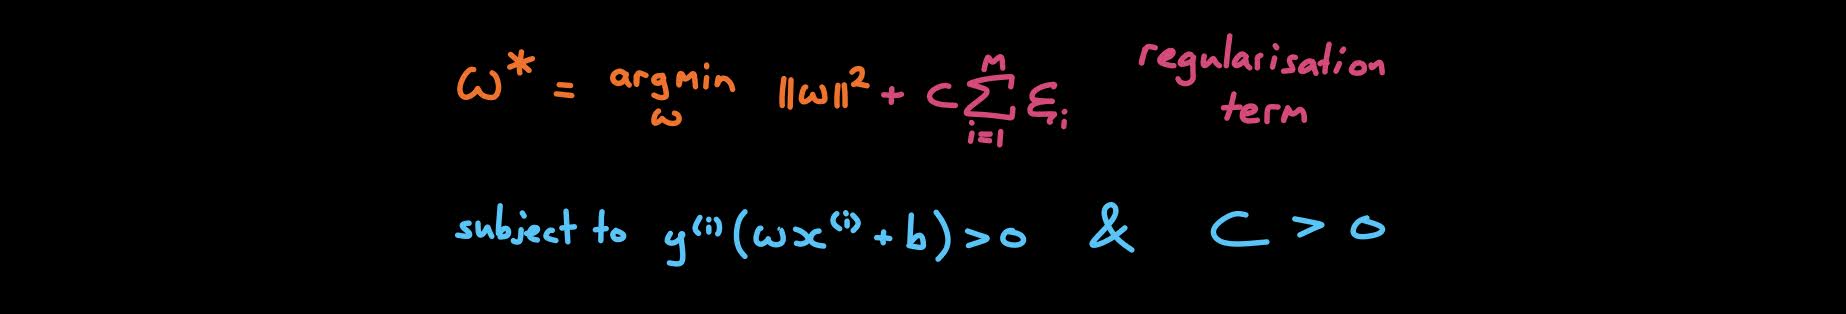 ω* = argmin ω ||ω||² + C Σ i=1 M ξi regularisation term
subject to y⁽ⁱ⁾(ωx⁽ⁱ⁾ + b) > 0 & C > 0